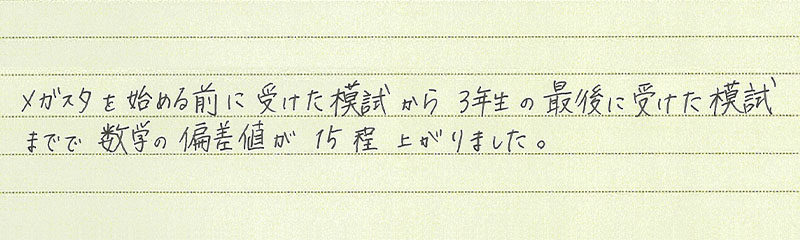 メガスタを始める前に受けた模試から3年生の最後に受けた模試
までで数学の偏差値が15程上がりました。